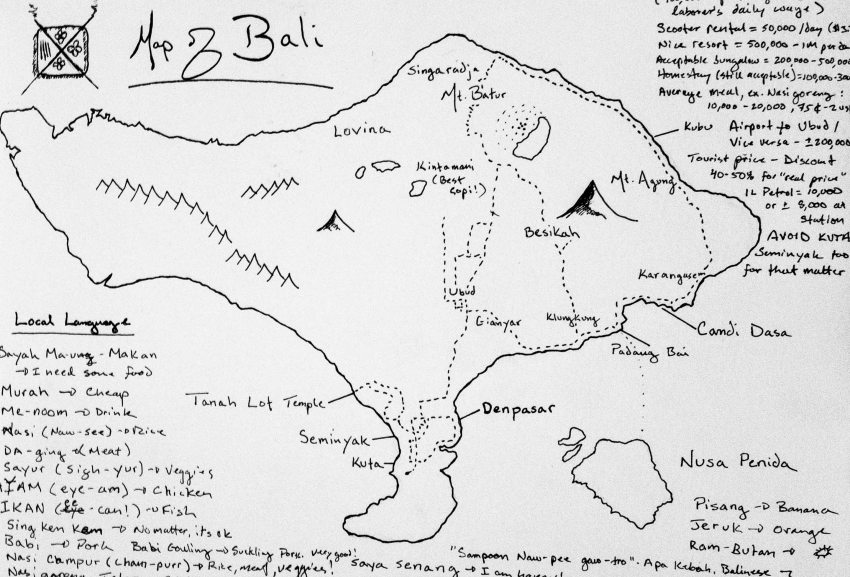 Map of Bali
laborer's daily wage)
Scooter rental = 50,000 /day ($3
Nice resort = 500,000 - 1M per da
Acceptable bungalow = 200,000 - 500,000
Homestay (still acceptable) = 100,000 - 300
Average meal, ex. Nasi goreng:
10,000 - 20,000, 75¢ - 2 us
Airport to Ubud /
Vice versa - ± 200,000
Tourist price - Discount
40-50% for "real price"
1L Petrol = 10,000
or ± 8,000 at
station
AVOID KUTA
Seminyak too
for that matter
Singaradja
Mt. Batur
Lovina
Kubu
Kintamani
(Best
Kopi!)
Mt. Agung
Besikah
Karangase
Ubud
Gianyar
Klungkung
Candi Dasa
Padang Bai
Tanah Lot Temple
Denpasar
Seminyak
Kuta
Nusa Penida
Local Language
Sayah Ma-ung - Makan
→ I need some food
Murah → Cheap
Me-noom → Drink
Nasi (Naw-see) → Rice
DA-ging (Meat)
Sayur (Sigh-yur) → Veggies
AYAM (eye-am) → Chicken
IKAN (ee-can!) → Fish
Sing Ken Ken → No matter, it's ok
Babi → Pork Babi Guling → Suckling Pork. Very good!
Nasi Campur (Cham-purr) → Rice, meat, veggies!
Saya Senang → I am
"Sampoon Naw-pee gaw-tro". Apa Kabah, Balinese
Pisang → Banana
Jeruk → Orange
Ram-Butan →
Nasi goreng